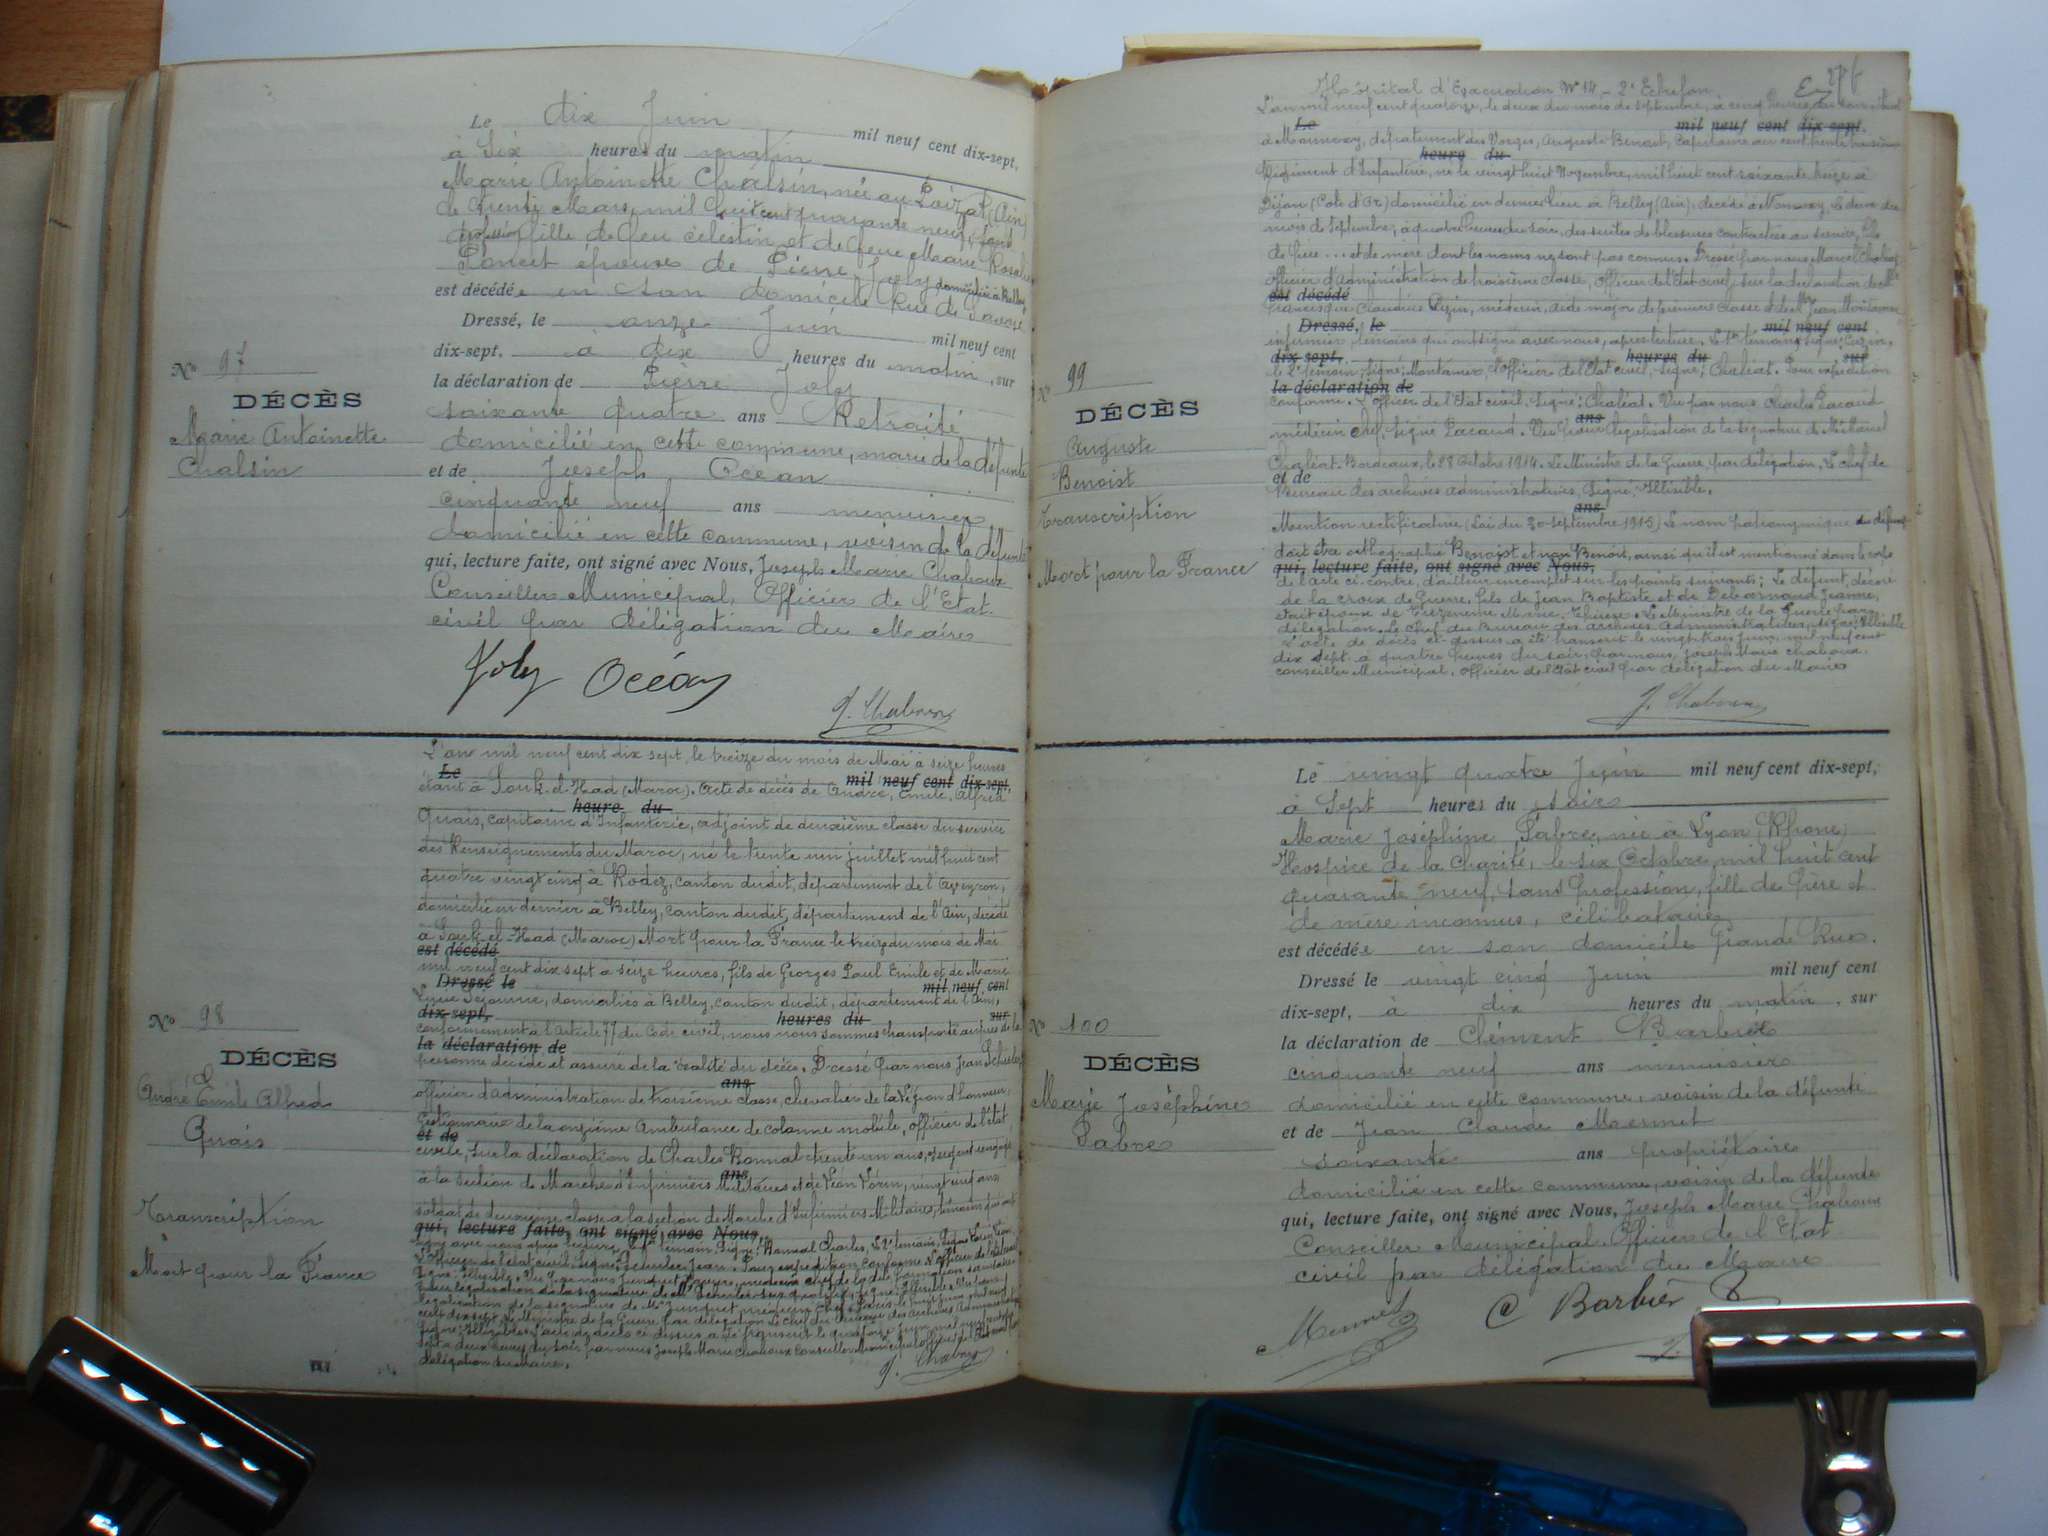 Le dix Juin mil neuf cent dix-sept,
à Six heures du matin
Marie Antoinette Chalsin, née au Loizat (Ain)
le Mars, mil huit cent quarante neuf, sans
profession fille de feu Célestin et de feue Marie Rosalie
Poncet épouse de Pierre Joly domiciliée à Belley
est décédée en son domicile Rue de Savoie
Dressé, le onze Juin mil neuf cent
dix-sept, à dix heures du matin, sur
la déclaration de Pierre Joly
soixante quatre ans Retraité
domicilié en cette commune, marie de la défunte
et de Joseph Océan
cinquante neuf ans menuisier
domicilié en cette commune, voisin de la défunte
qui, lecture faite, ont signé avec Nous, Joseph Marie Chaboux
Conseiller Municipal, Officier de l'Etat
civil par délégation du Maire
Joly Océan
J. Chaboux
No 97
DÉCÈS
Marie Antoinette
Chalsin
L'an mil neuf cent dix sept, le treize du mois de Mai à seize heures
Le mil neuf cent dix-sept,
étant à Souk-el-Had (Maroc). Acte de décès de André, Emile, Alfred
heure du
Quais, capitaine d'Infanterie, adjoint de deuxième classe du service
des Renseignements du Maroc, né le trente un juillet mil huit cent
quatre vingt cinq à Rodez, canton dudit, département de l'Aveyron,
domicilié en dernier à Belley, canton dudit, département de l'Ain, décédé
à Souk-el-Had (Maroc) Mort pour la France le treize du mois de Mai
est décédé
mil neuf cent dix sept à seize heures, fils de Georges Paul Emile et de Marie
Dressé le mil neuf cent
domiciliés à Belley, canton dudit, département de l'Ain,
dix-sept, heures du sur
conformément à l'Article 77 du Code civil, nous nous sommes transporté auprès de la
la déclaration de
personne décédée et assuré de la réalité du décès. Dressé par nous Jean Schuler
ans
officier d'administration de troisième classe, chevalier de la Légion d'honneur,
Gestionnaire de la onzième Ambulance de colonne mobile, officier de l'état
et de
civil, sur la déclaration de Charles Bonnal trente un ans, sergent
ans
à la Section de Marche d'Infirmiers Militaires et de Léon Vérin, vingt un ans
soldat de deuxième classe à la section de Marche d'Infirmiers Militaires, témoins qui ont
qui, lecture faite, ont signé avec Nous,
signé avec nous après lecture. témoin, Signé: Bonnal Charles,
délégation du Maire.
J. Chaboux
No 98
DÉCÈS
André Emile Alfred
Quais
Transcription
Mort pour la France
Hôpital d'Evacuation No 14 - 2e Echelon
L'an mil neuf cent quatorze, le deux du mois de septembre, à cinq heures du soir, étant
Le mil neuf cent dix-sept,
à département des Vosges, Auguste Benoist, capitaine au cent trente troisième
heure du
Régiment d'Infanterie, né le vingt huit Novembre, mil huit cent soixante treize à
Dijon (Côte d'Or) domicilié en dernier lieu à Belley (Ain), décédé à le deux du
mois de Septembre, à quatre heures du soir, des suites de blessures contractées au service, fils
de père ... et de mère dont les noms ne sont pas connus. Dressé par nous, Marcel Chaléat,
officier d'Administration de troisième classe, officier de l'Etat civil, sur la déclaration de
est décédé
François Claudius Cuzin, médecin, aide major de première classe et de Mr Jean Montameur
Dressé, le mil neuf cent
infirmier témoins qui ont signé avec nous, après lecture. Le 1er témoin signé: Cuzin,
dix sept, heures du sur
le 2e témoin, signé: Montameur, l'Officier de l'Etat civil, signé: Chaléat. Pour expédition
la déclaration de
conforme. L'Officier de l'Etat civil, signé: Chaléat. Vu par nous Charles Pacaud
ans
médecin chef, signé Pacaud. Vu pour légalisation de la signature de
Chaléat. Bordeaux, le 28 Octobre 1914. Le Ministre de la Guerre, par délégation, Le chef de
et de
Bureau des archives administratives, Signé, Illisible.
ans
Mention rectificative (Loi du 30 septembre 1915) Le nom patronymique du défunt
doit être orthographié Benoist et non Benoit, ainsi qu'il est mentionné dans le corps
qui, lecture faite, ont signé avec Nous,
de l'acte ci-contre, d'ailleurs incomplet sur les points suivants: Le défunt, décoré
de la croix de Guerre, fils de Jean Baptiste et de Debornaud Jeanne,
était époux de Marie, Thérèse. Le Ministre de la Guerre par
délégation. Le Chef du Bureau des archives administratives, signé: Illisible
L'acte de décès ci-dessus a été transcrit le vingt trois Juin, mil neuf cent
dix sept à quatre heures du soir, par nous, Joseph Marie Chaboux,
conseiller Municipal, officier de l'Etat civil par délégation du Maire
J. Chaboux
No 99
DÉCÈS
Auguste
Benoist
Transcription
Mort pour la France
Le vingt quatre Juin mil neuf cent dix-sept,
à Sept heures du soir
Marie Joséphine Fabre, née à Lyon (Rhône)
Hospice de la Charité, le six Octobre mil huit cent
quarante neuf, sans profession, fille de père et
de mère inconnus, célibataire
est décédée en son domicile Grande Rue.
Dressé le vingt cinq Juin mil neuf cent
dix-sept, à dix heures du matin, sur
la déclaration de Clément Barbier
cinquante neuf ans menuisier
domicilié en cette commune, voisin de la défunte
et de Jean Claude Mermet
soixante ans propriétaire
domicilié en cette commune, voisin de la défunte
qui, lecture faite, ont signé avec Nous, Joseph Marie Chaboux
Conseiller Municipal Officier de l'Etat
civil par délégation du Maire
Mermet C Barbier
No 100
DÉCÈS
Marie Joséphine
Fabre